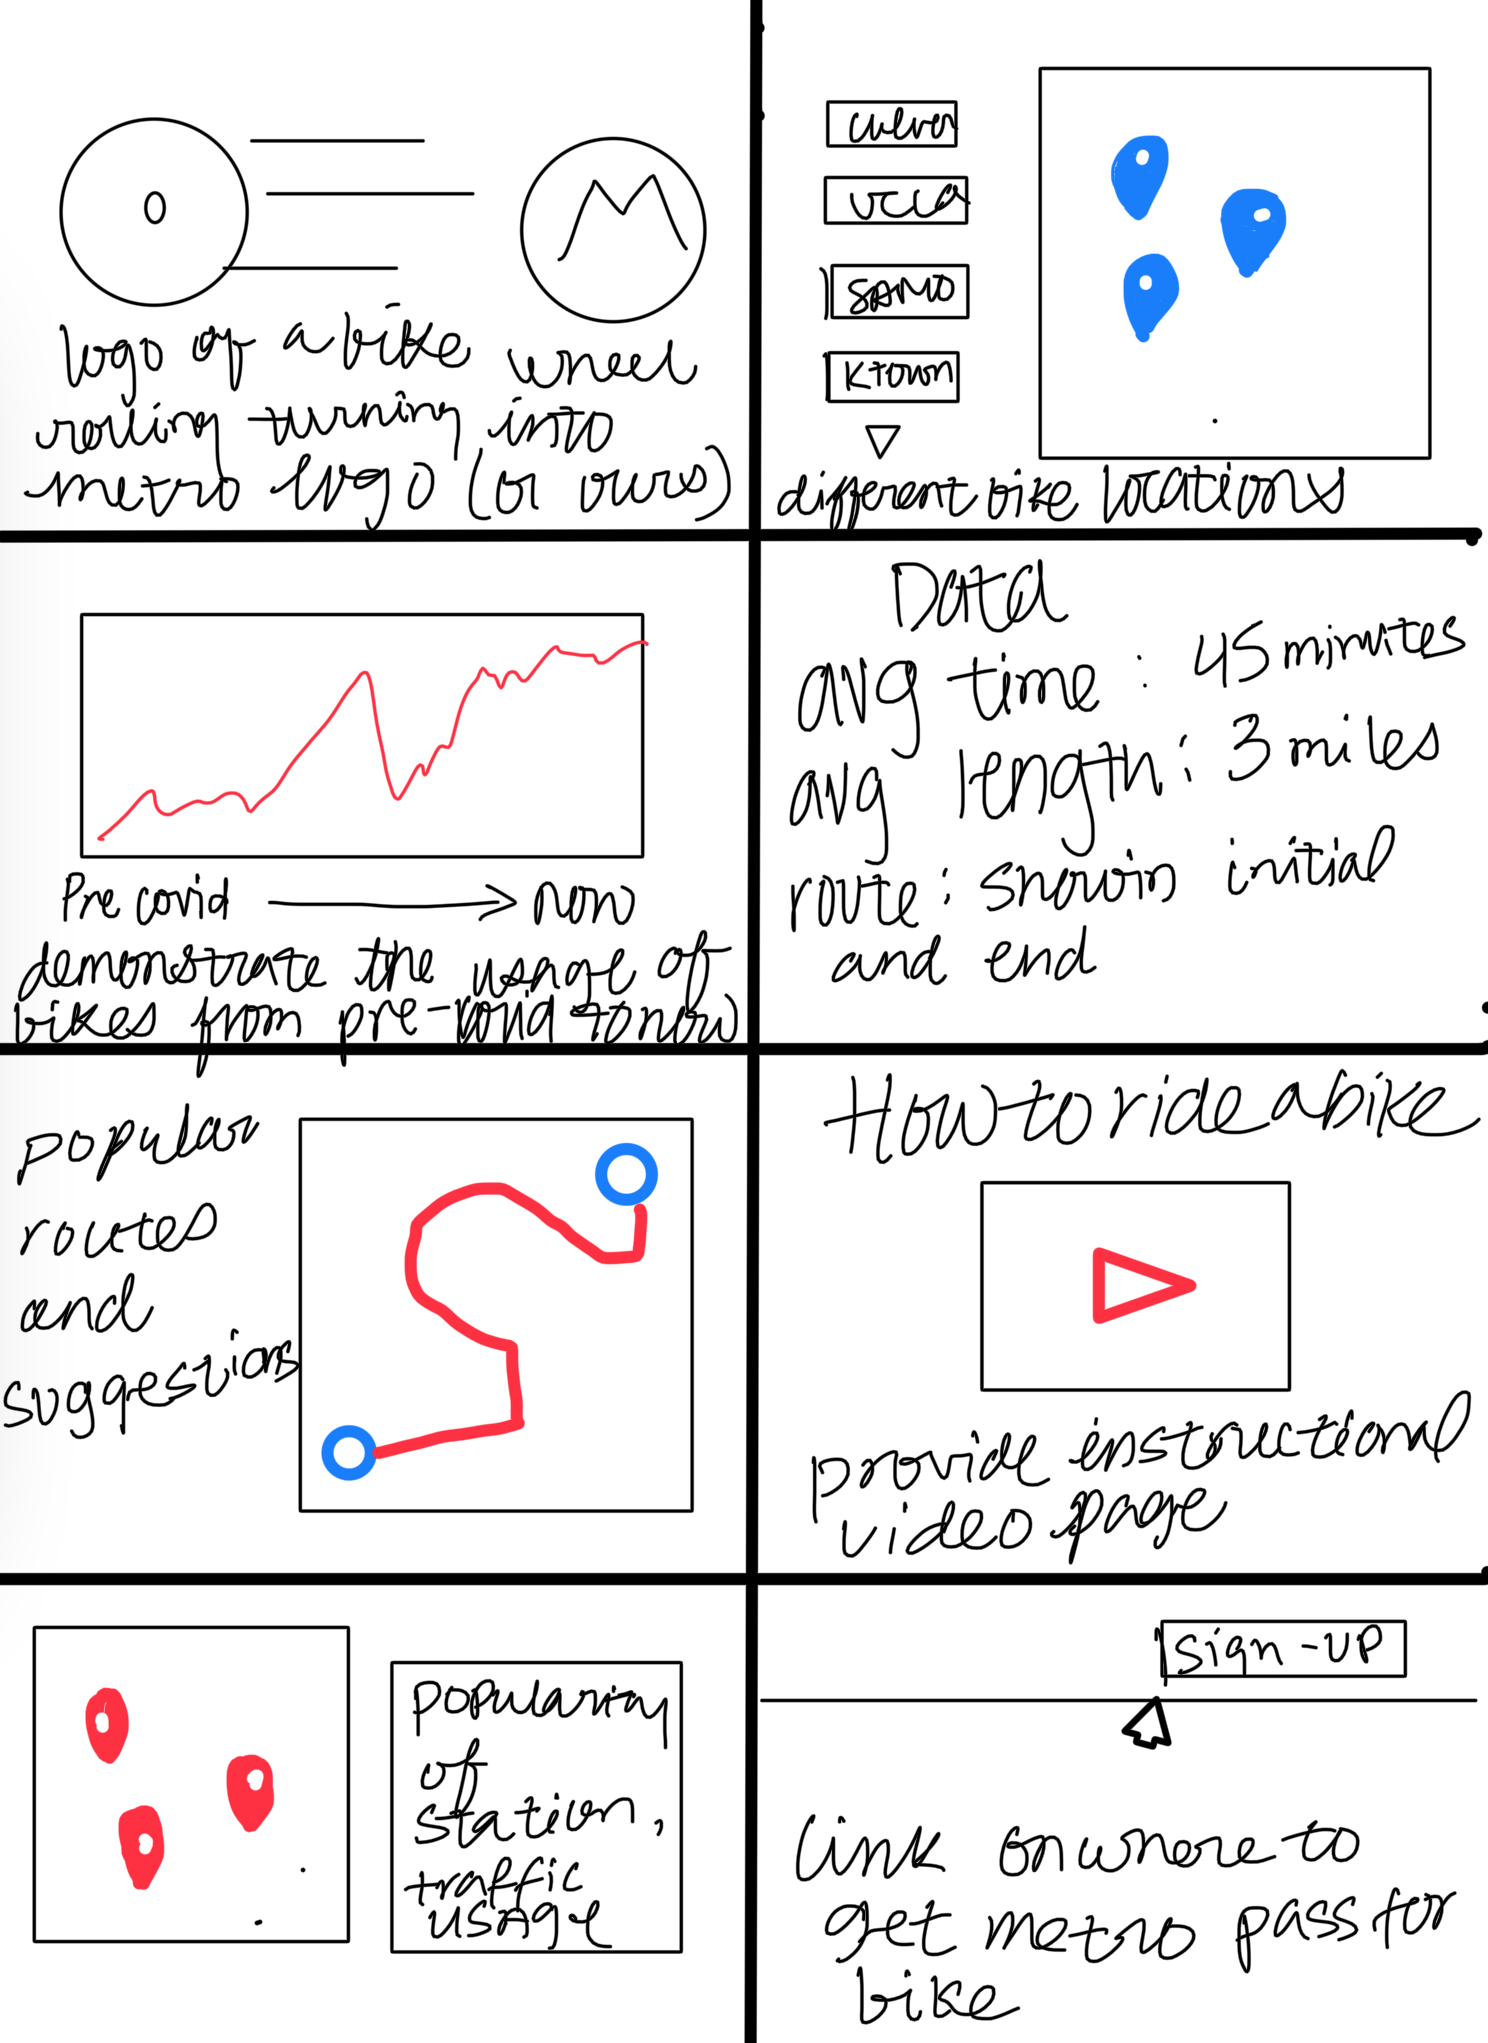 logo of a bike wheel
rolling turning into
metro logo (or ours)
culver
UCLA
SAMO
KTOWN
different bike locations
Pre covid → now
demonstrate the usage of
bikes from pre-covid to now
Data
avg time: 45 minutes
avg length: 3 miles
route: showin initial
and end
popular
routes
and
suggestions
How to ride a bike
provide instructional
video page
popularity
of
station,
traffic
usage
sign-up
link on where to
get metro pass for
bike